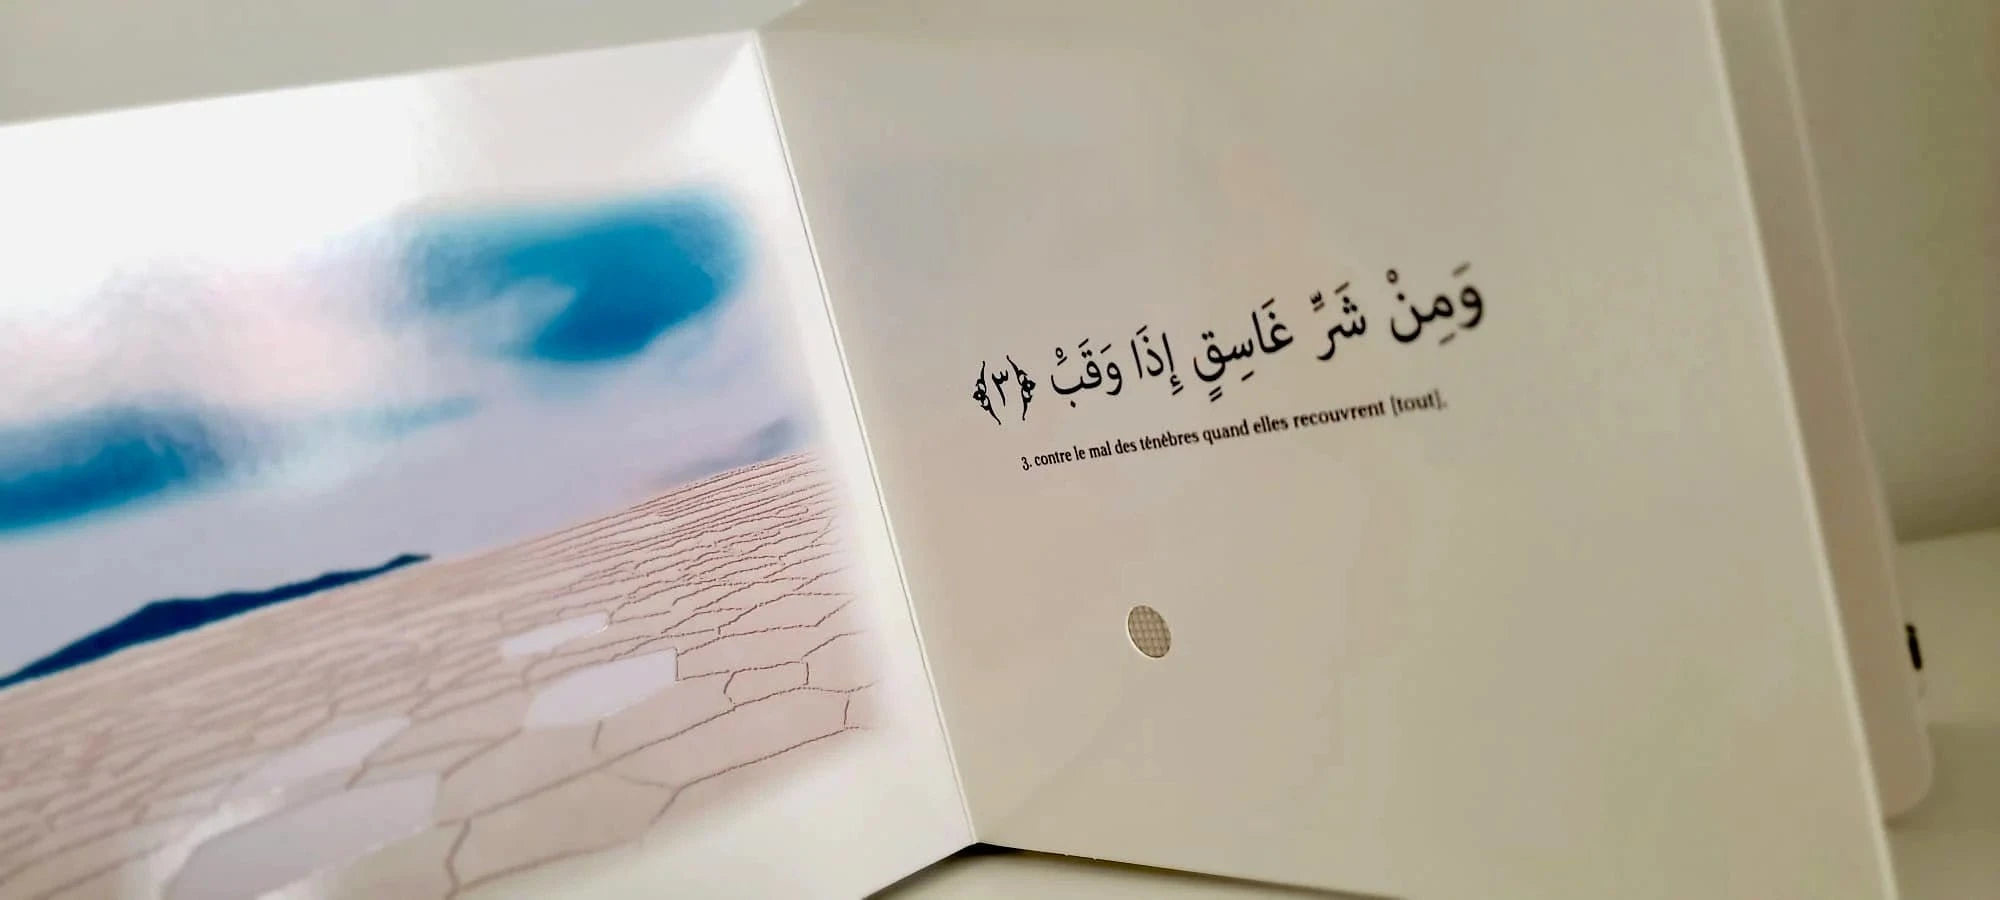 وَمِنْ شَرِّ غَاسِقٍ إِذَا وَقَبَْ ﴿٣﴾
3. contre le mal des ténèbres quand elles recouvrent [tout].